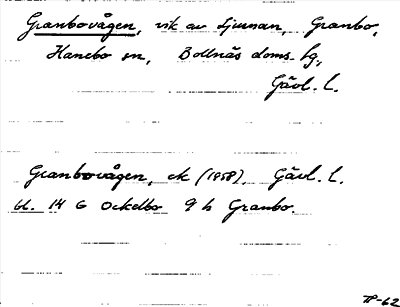 Granbovågen, vik av Ljusnan, Granbo,
Hanebo sn, Bollnäs doms. hg,
Gävl. l.
Granbovågen, ek (1958), Gävl. l.
bl. 14 G Ockelbo 9 h Granbo.
-62